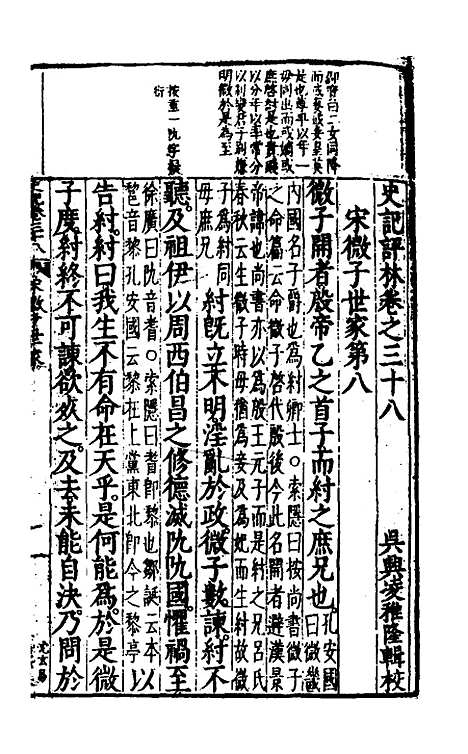 史記評林卷之三十八
吳興凌稚隆輯校
宋微子世家第八
微子開者殷帝乙之首子而紂之庶兄也
孔安國
曰微畿
內國名子爵也為紂卿士○索隱曰按尚書微子
之命篇云命微子啓代殷後今此名開者避漢景
帝諱也尚書亦以為殷王元子而是紂之兄呂氏
春秋云生微子時母猶為妾及為妃而生紂故微
子為紂同
母庶兄
紂既立不明淫亂於政微子數諫紂不
聽及祖伊以周西伯昌之修德滅阢阢國懼禍至
徐廣曰阢音耆○索隱曰耆即黎也鄒誕云本
音黎孔安國云黎在上黨東北即今之黎亭
以
告紂紂曰我生不有命在天乎是何能為於是微
子度紂終不可諫欲死之及去未能自決乃問於
曰二女同降
是也尊卑以年一
母同出而或嫡或
庶啓紂是也貴賤
明微於是為至
按重一阢字疑
衍